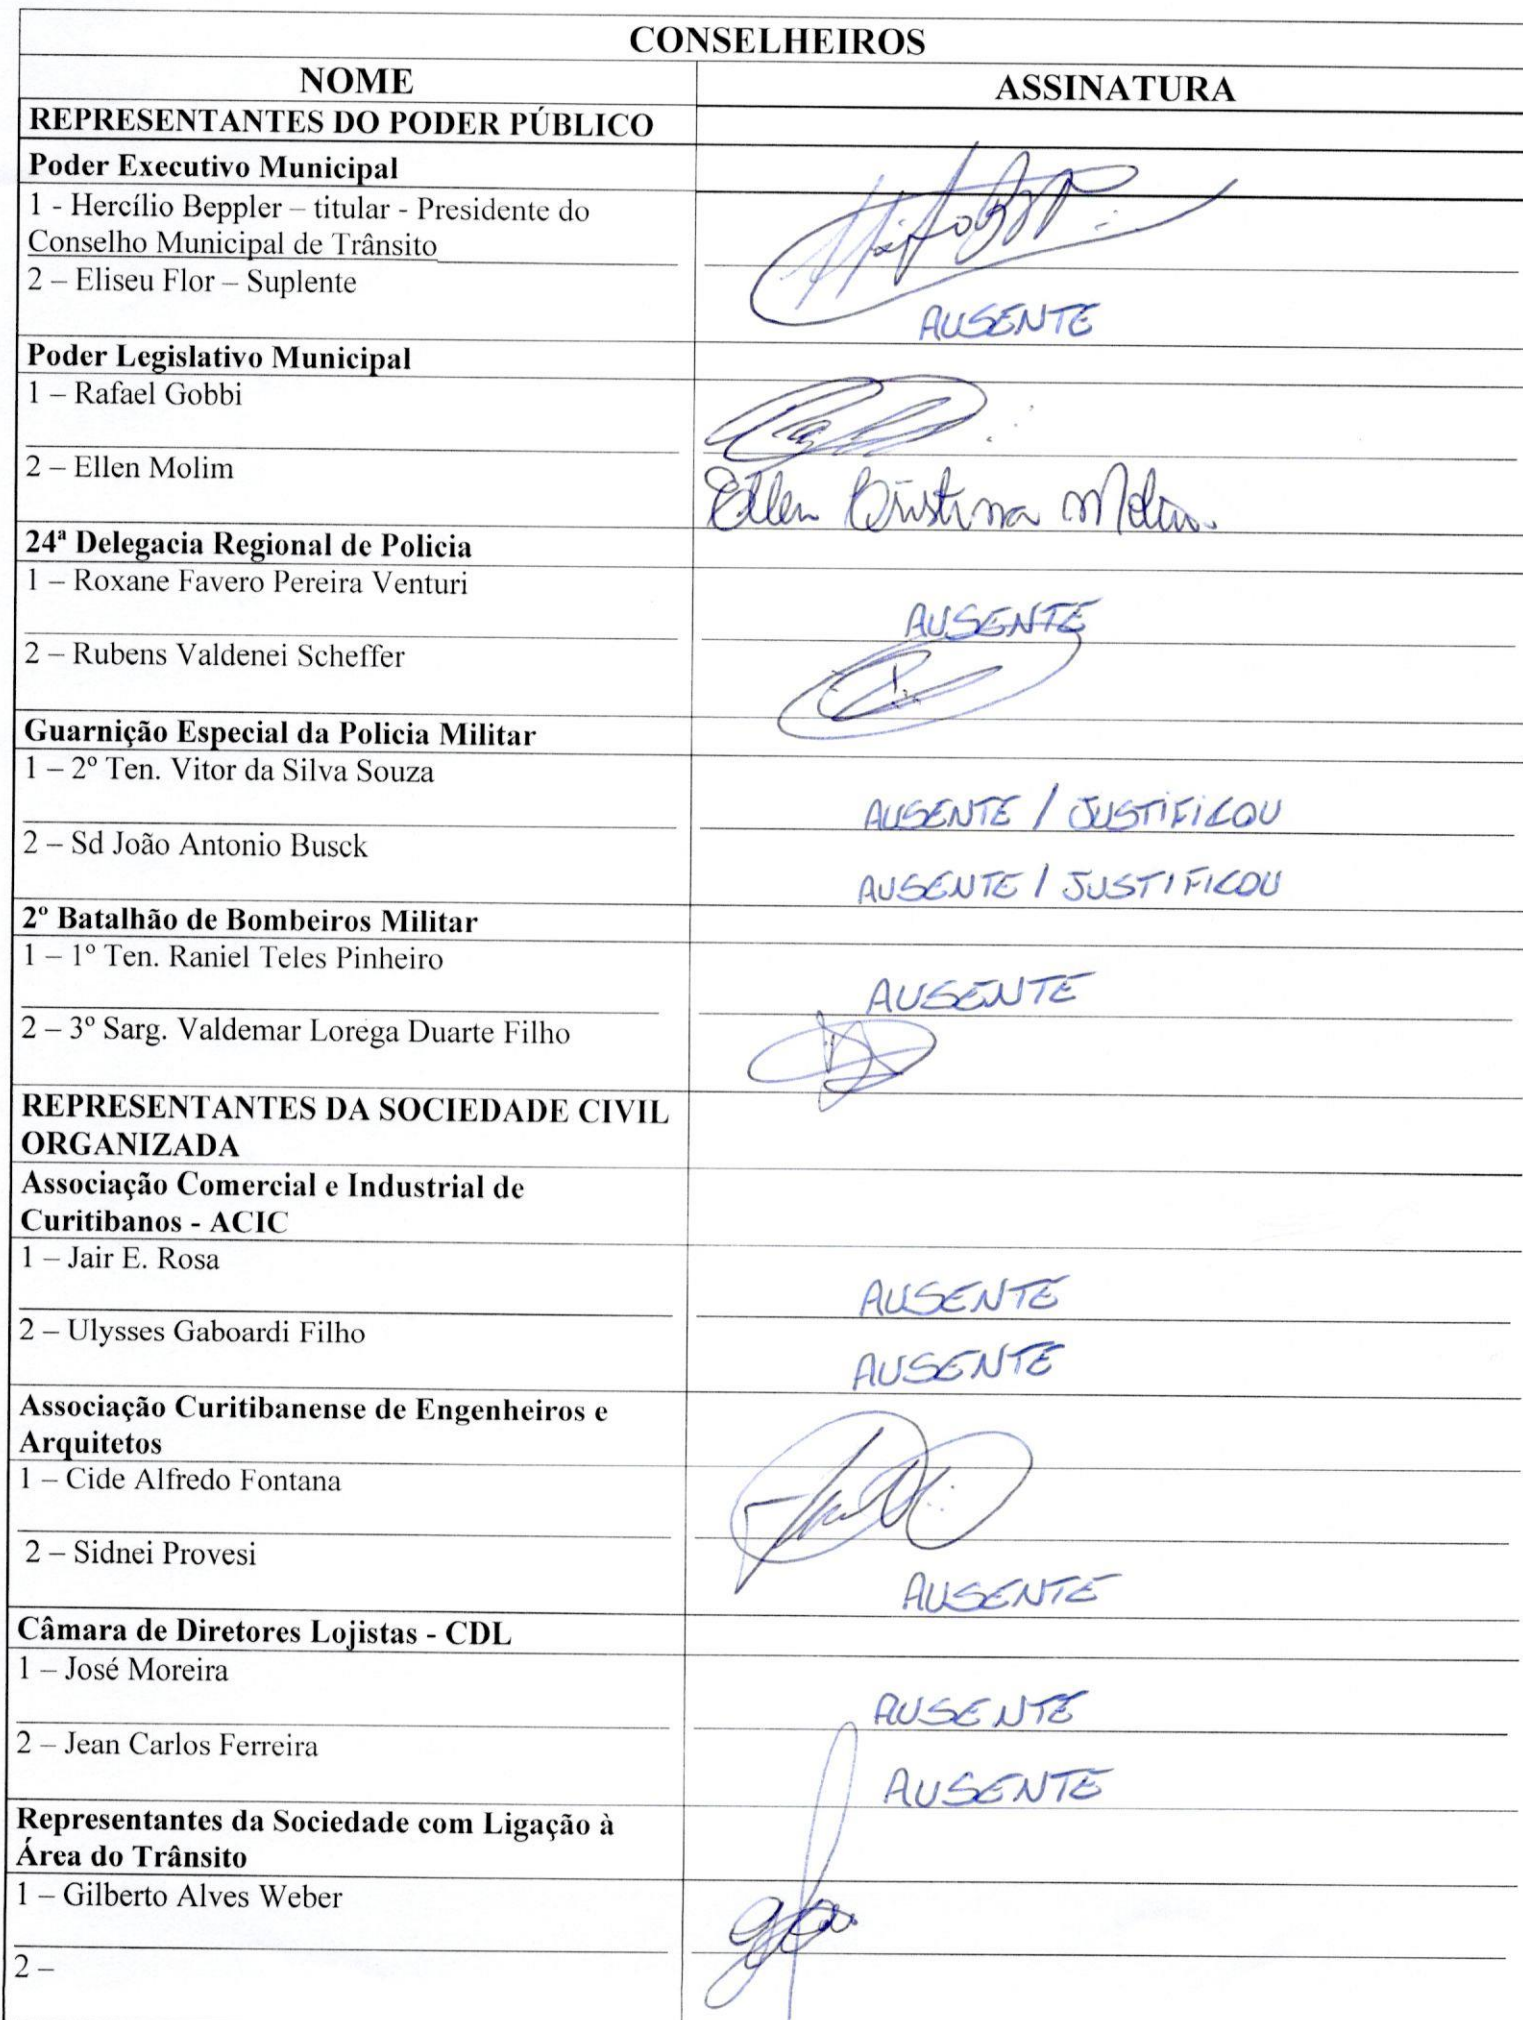 CONSELHEIROS
NOME
ASSINATURA
REPRESENTANTES DO PODER PÚBLICO
Poder Executivo Municipal
1 - Hercílio Beppler – titular - Presidente do
Conselho Municipal de Trânsito
2 – Eliseu Flor – Suplente
AUSENTE
Poder Legislativo Municipal
1 – Rafael Gobbi
2 – Ellen Molim
Ellen Cristina Molim
24ª Delegacia Regional de Policia
1 – Roxane Favero Pereira Venturi
AUSENTE
2 – Rubens Valdenei Scheffer
Guarnição Especial da Policia Militar
1 – 2º Ten. Vitor da Silva Souza
AUSENTE / JUSTIFICOU
2 – Sd João Antonio Busck
AUSENTE / JUSTIFICOU
2º Batalhão de Bombeiros Militar
1 – 1º Ten. Raniel Teles Pinheiro
AUSENTE
2 – 3º Sarg. Valdemar Lorega Duarte Filho
REPRESENTANTES DA SOCIEDADE CIVIL
ORGANIZADA
Associação Comercial e Industrial de
Curitibanos - ACIC
1 – Jair E. Rosa
AUSENTE
2 – Ulysses Gaboardi Filho
AUSENTE
Associação Curitibanense de Engenheiros e
Arquitetos
1 – Cide Alfredo Fontana
2 – Sidnei Provesi
AUSENTE
Câmara de Diretores Lojistas - CDL
1 – José Moreira
AUSENTE
2 – Jean Carlos Ferreira
AUSENTE
Representantes da Sociedade com Ligação à
Área do Trânsito
1 – Gilberto Alves Weber
2 –